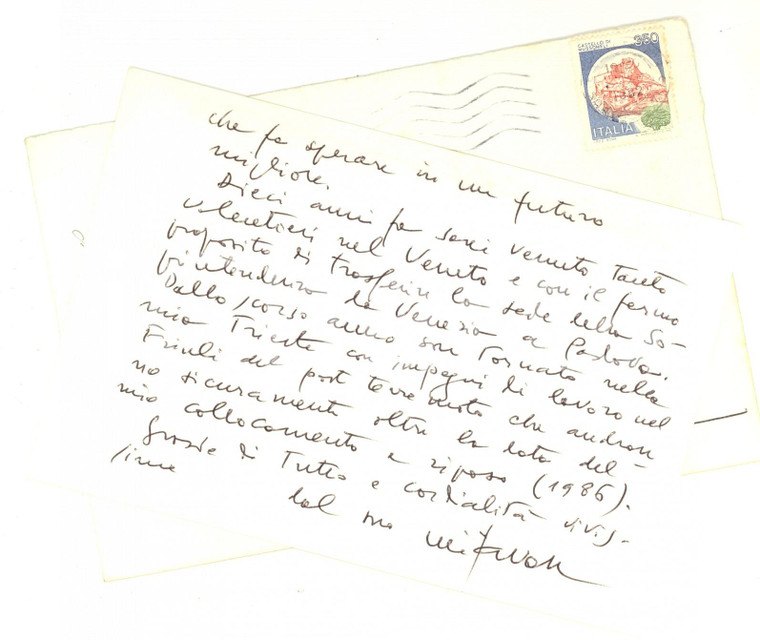 CASTELLO DI MUSSOMELI
350
ITALIA
che fa sperare in un futuro
migliore.
Dieci anni fa sarei venuto tanto
volentieri nel Veneto e con il fermo
proposito di trasferire la sede della So-
printendenza da Venezia a Padova.
Dallo scorso anno son tornato nella
mia Trieste con impegni di lavoro nel
Friuli del post terremoto che andran
no sicuramente oltre la data del
mio collocamento a riposo (1986).
Grazie di Tutto e cordialità vivis-
sime
dal suo